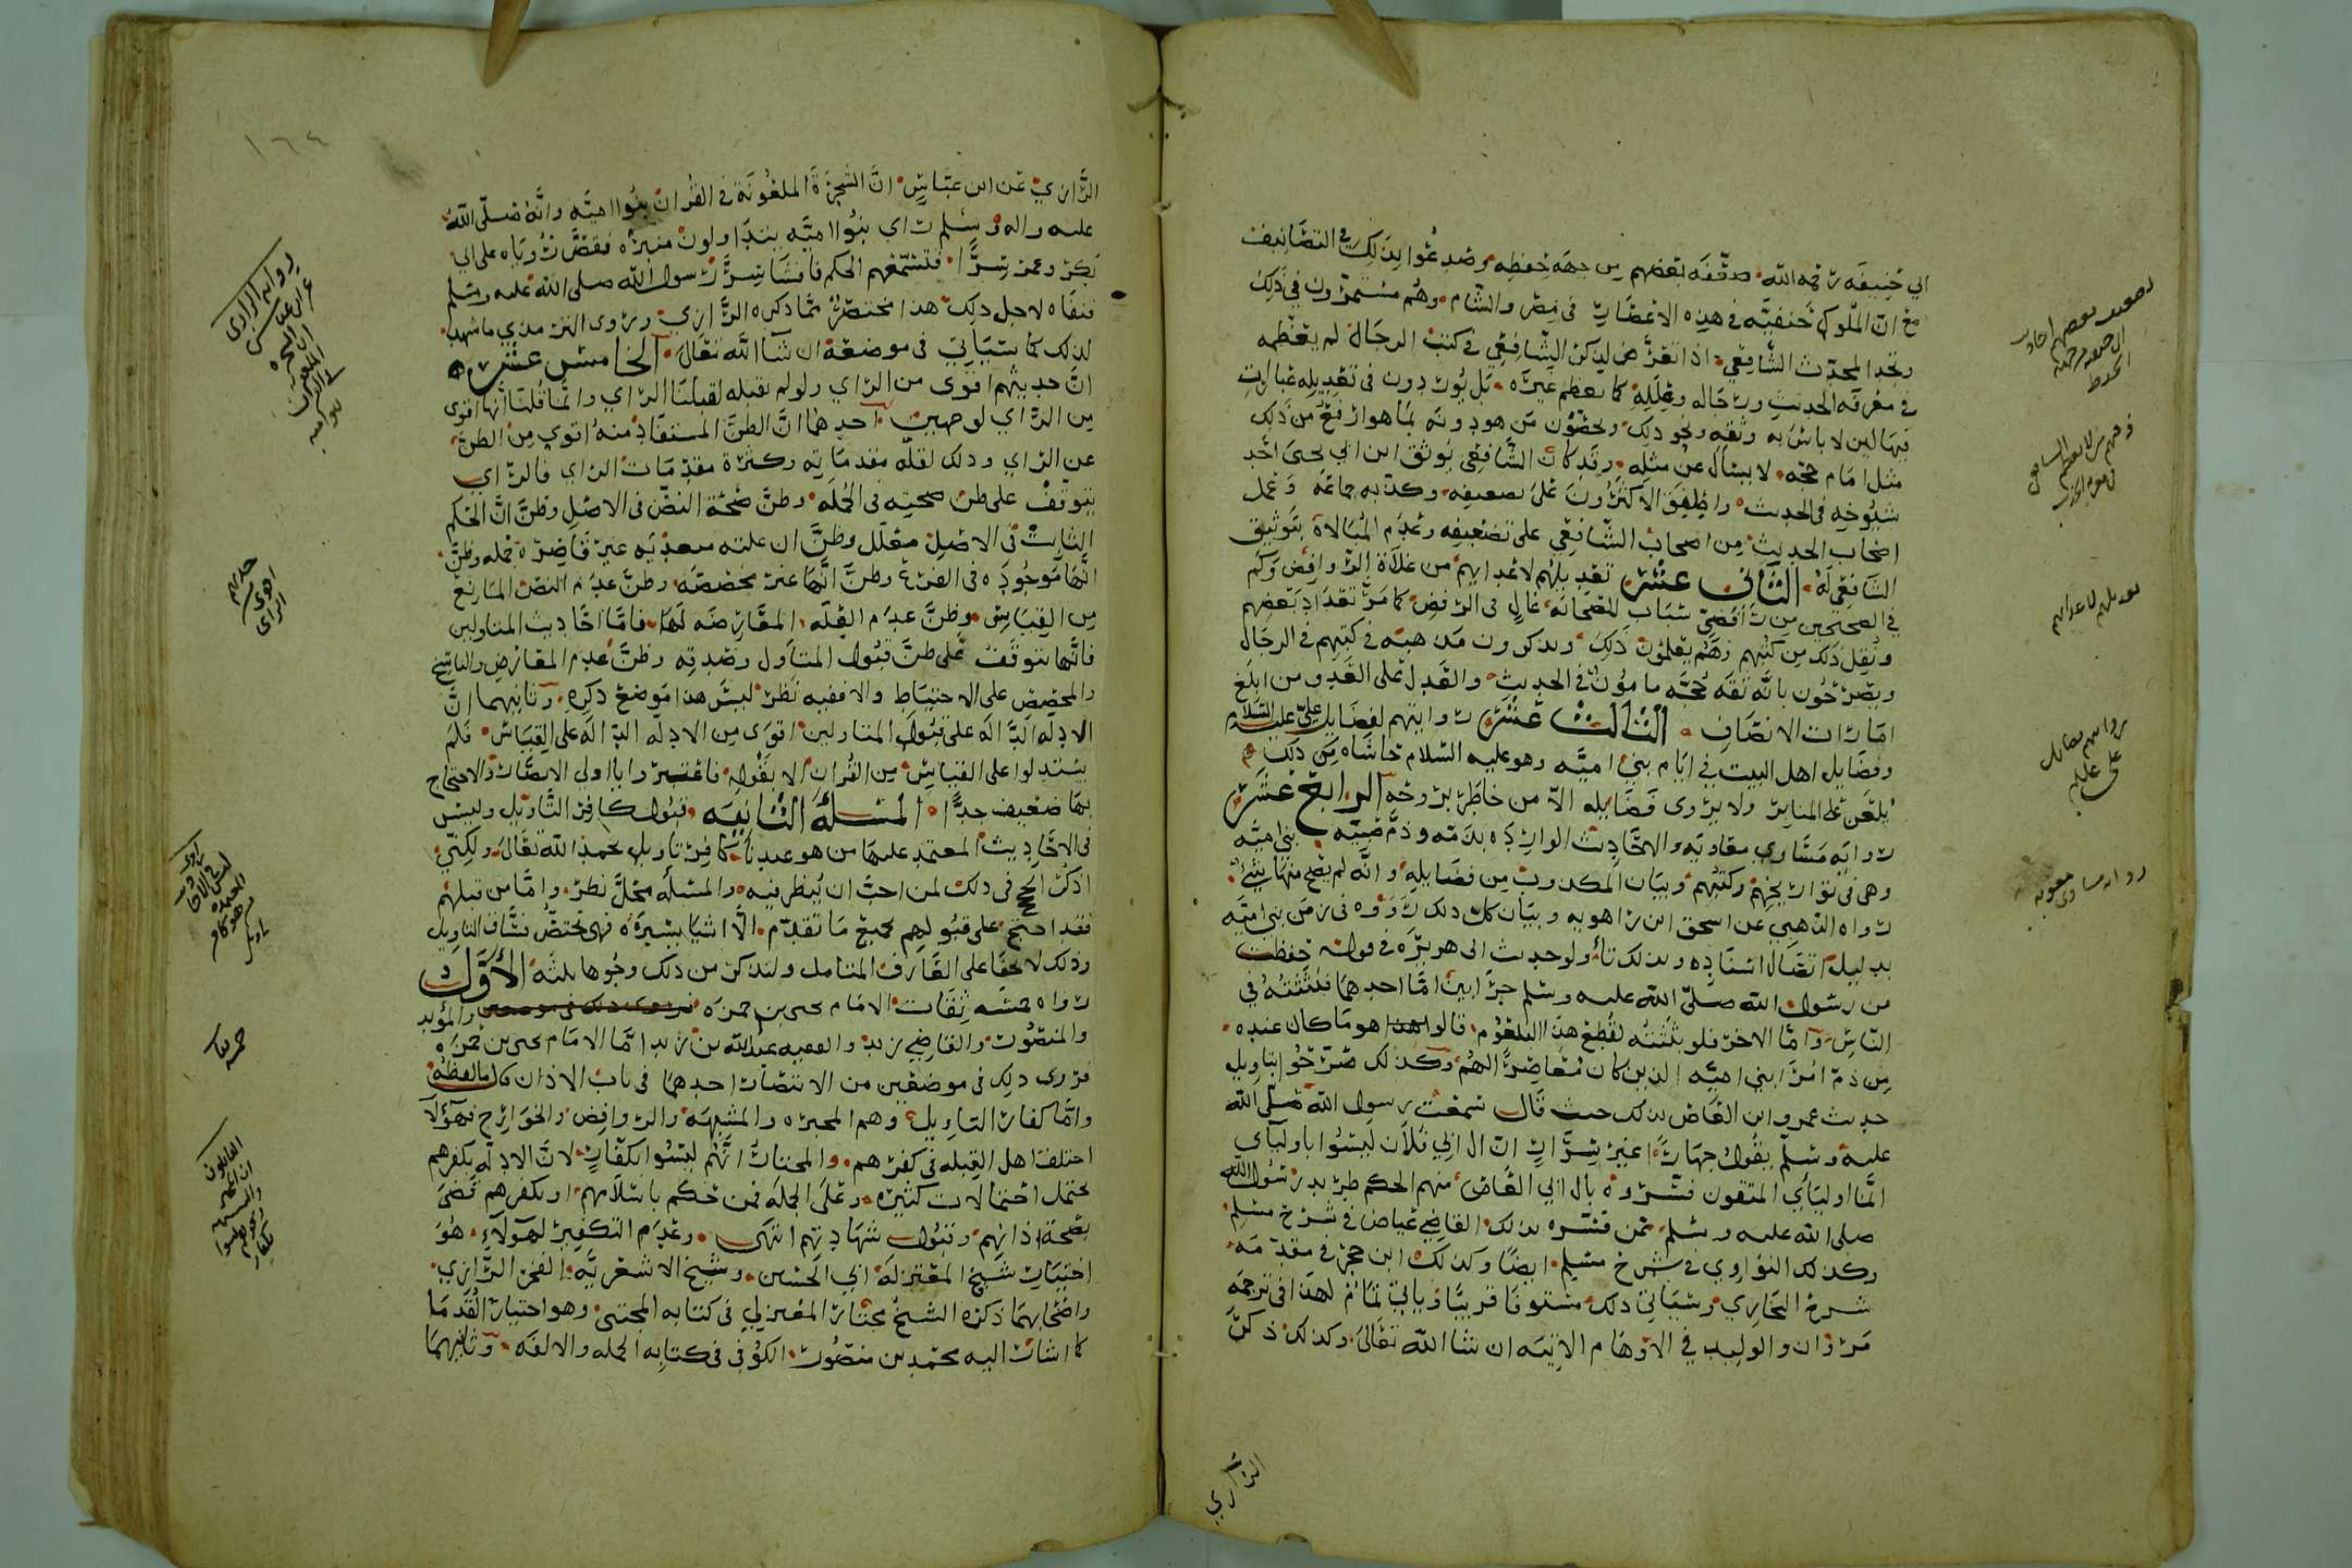 ابي حنيفه رحمه الله صعّفه بعضهم من جهة حفظه وصدعوا بذلك في التصانيف
مع ان الملوك حنفيّه في هذه الاعصار في مصر والشام وهم مستمرون في ذلك
وتجد المحدث الشافعي اذا تعرّض لذكر الشافعي في كتب الرجال لم يعظمه
في معرفة الحديث ورجاله وعلله كما يعظم غيره بل يوردون في تعديله عبارات
فيها لين لا باس به وثقه ونحو ذلك ويخصّون من هو دونه بما هو ارفع من ذلك
مثل امام حجه لا يسال عن مثله وقد كان الشافعي يوثق ابن ابي يحيى احد
شيوخه في الحديث واطبق الاكثرون على تضعيفه وكذبه جماعة وعمل
اصحاب الحديث من اصحاب الشافعي على تضعيفه وعدم المبالاة بتوثيق
الشافعي له الثاني عشر تعديلهم لاعدايهم من غلاة الروافض وكم
في الصحيحين من رافضي سباب للصحابه غال في الرفض كما مرّ تعداد بعضهم
ونقل ذلك من كتبهم وهم يعلمون ذلك ويذكرون مذهبه في كتبهم في الرجال
ويصرحون بانه ثقه حجّه مامون في الحديث والعدل على العدو من ابلغ
امارات الانصاف الثالث عشر روايتهم لفضايل علي عليه السلام
وفضايل اهل البيت في ايام بني اميّه وهو عليه السلام حاشاه من ذلك
يلعن على المنابر ولا يروى فضايله الا من خاطر بروحه الرابع عشر
رواية مساوي معاويه والاحاديث الوارده بذمّه وذمّ بني اميّه
وهي في تواريخهم وكتبهم وبيان المكذوب من فضايله وانه لم يصح منها شيء
رواه الذهبي عن اسحق ابن راهويه وبيان كل ذلك رووه في زمن بني اميّه
بدليل اتصال اسناده وبذلك تأولوا حديث ابي هريره في قوله حفظت
من رسول الله صلى الله عليه وسلم جرابين امّا احدهما فبثثته في
الناس وامّا الاخر فلو بثثته لقطع هذا البلعوم قالوا هو ما كان عنده
من ذم امرا بني اميّه الذين كان معاصرًا لهم وكذلك صرحوا بتاويل
حديث عمرو ابن العاص بذلك حيث قال سمعت رسول الله صلى الله
عليه وسلم يقول جهارًا غير سرّ انّ ال ابي فلان ليسوا باوليآي
انما اوليآي المتقون فسّروه بال ابي العاص منهم الحكم طريد رسول الله
صلى الله عليه وسلم ممن فسّره بذلك القاضي عياض في شرح مسلم
وكذلك النواوي في شرح مسلم ايضًا وكذلك ابن حجر في مقدّمة
شرح البخاري وسياتي ذلك مستوفا قريبًا وياتي تمام لهذا في ترجمة
مروان والوليد في الاوهام الاتيه ان شا الله تعالى وكذلك ذكر
الرازي
رواية مساوي معاويه
١٦٤
الرازي عن ابن عبّاس ان الشجرة الملعونة في القران بنوا اميّه وانه صلى الله
عليه واله وسلم راى بنوا اميّه يتداولون منبره فقصّ رؤياه على ابي
بكر وعمر سرًّا فتسمّعهم الحكم فافشا سرّ رسول الله صلى الله عليه وسلم
فنفاه لاجل ذلك هذا مختصر ممّا ذكره الرازي وروى الترمذي ما شهد
لذلك كما سياتي في موضعه ان شآ الله تعالى الخامس عشر
انّ حديثهم اقوى من الراي ولو لم نقبله لقبلنا الراي وانما قلنا انها اقوى
من الراي لوجهين احدهما انّ الظنّ المستفاد منه اقوى من الظنّ
عن الراي وذلك لقلّة مقدماته وكثرة مقدّمات الراي فالراي
يتوقف على ظن صحته في الجملة وظنّ صحّة النصّ في الاصل وظنّ انّ الحكم
الثابت في الاصل معلل وظنّ ان علته متعدّيه غير قاصرة وظنّ
انّها موجوده في الفرع وظنّ انّها غير مخصّصه وظنّ عدم النصّ المانع
من القياس وظنّ عدم العلّه المعارضه لها فامّا احاديث المتاولين
فانّها تتوقف على ظنّ قبول المتأول وصدقه وظنّ عدم المعارض والناسخ
والمخصّص على الاحتياط والا ففيه نظر ليس هذا موضع ذكره وثانيهما انّ
الادلّه الدالّه على قبول المتاولين اقوى من الادلّه الدالّه على القياس فلم
يستدلوا على القياس من القران الا بقوله فاعتبروا يا اولي الابصار والاحتجاج
بها ضعيف جدًّا المسئلة الثانيه قبول كافر التاويل وليس
في الاحاديث المعتمد عليها من هو عندنا كافر تاويل بحمد الله تعالى ولكنّي
اذكر الحجج في ذلك لمن احبّ ان ينظر فيه والمسئله محلّ نظر وامّا من قبلهم
فقد احتج على قبولهم بجميع ما تقدّم الّا اشيا يسيره فهي تختصّ فسّاق التاويل
وذلك لا يخفا على العارف المتامل ولنذكر من ذلك وجوها ثلثة الاوّل
رواه خمسه ثقات الامام يحيى بن حمزه والمؤيد
والمنصور والقاضي زيد والفقيه عبدالله بن زيد امّا الامام يحيى بن حمزه
فروى ذلك في موضعين من الانتصار احدهما في باب الاذان قال ما لفظه
وامّا كفار التاويل وهم المجبره والمشبهه والروافض والخوارج فهؤلآ
اختلف اهل القبله في كفرهم والمختار انّهم ليسوا بكفّار لانّ الادلّه بكفرهم
تحتمل احتمالات كثيره وعلى الجملة فمن حكم باسلامهم او بكفرهم قضى
بصحة اذانهم وقبول شهادتهم انتهى وعدم التكفير لهؤلاء هو
اختيار شيخ المعتزله ابي الحسين وشيخ الاشعريّه الفخر الرازي
واصحابهما ذكره الشيخ مختار المعتزلي في كتابه المجتبى وهو اختيار القدما
كما اشار اليه محمّد بن منصور الكوفي في كتابه الجمله والالفه وثانيهما
رواية الرازي
عن ابن عباس
ان الشجره
الملعونه
في القران
بنو اميه
حديثهم
اقوى من
الراي